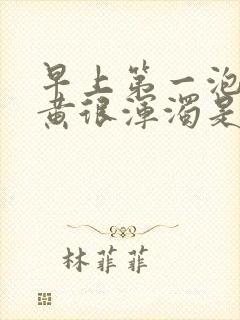 早上第一泡
黄很浑浊是
林菲菲